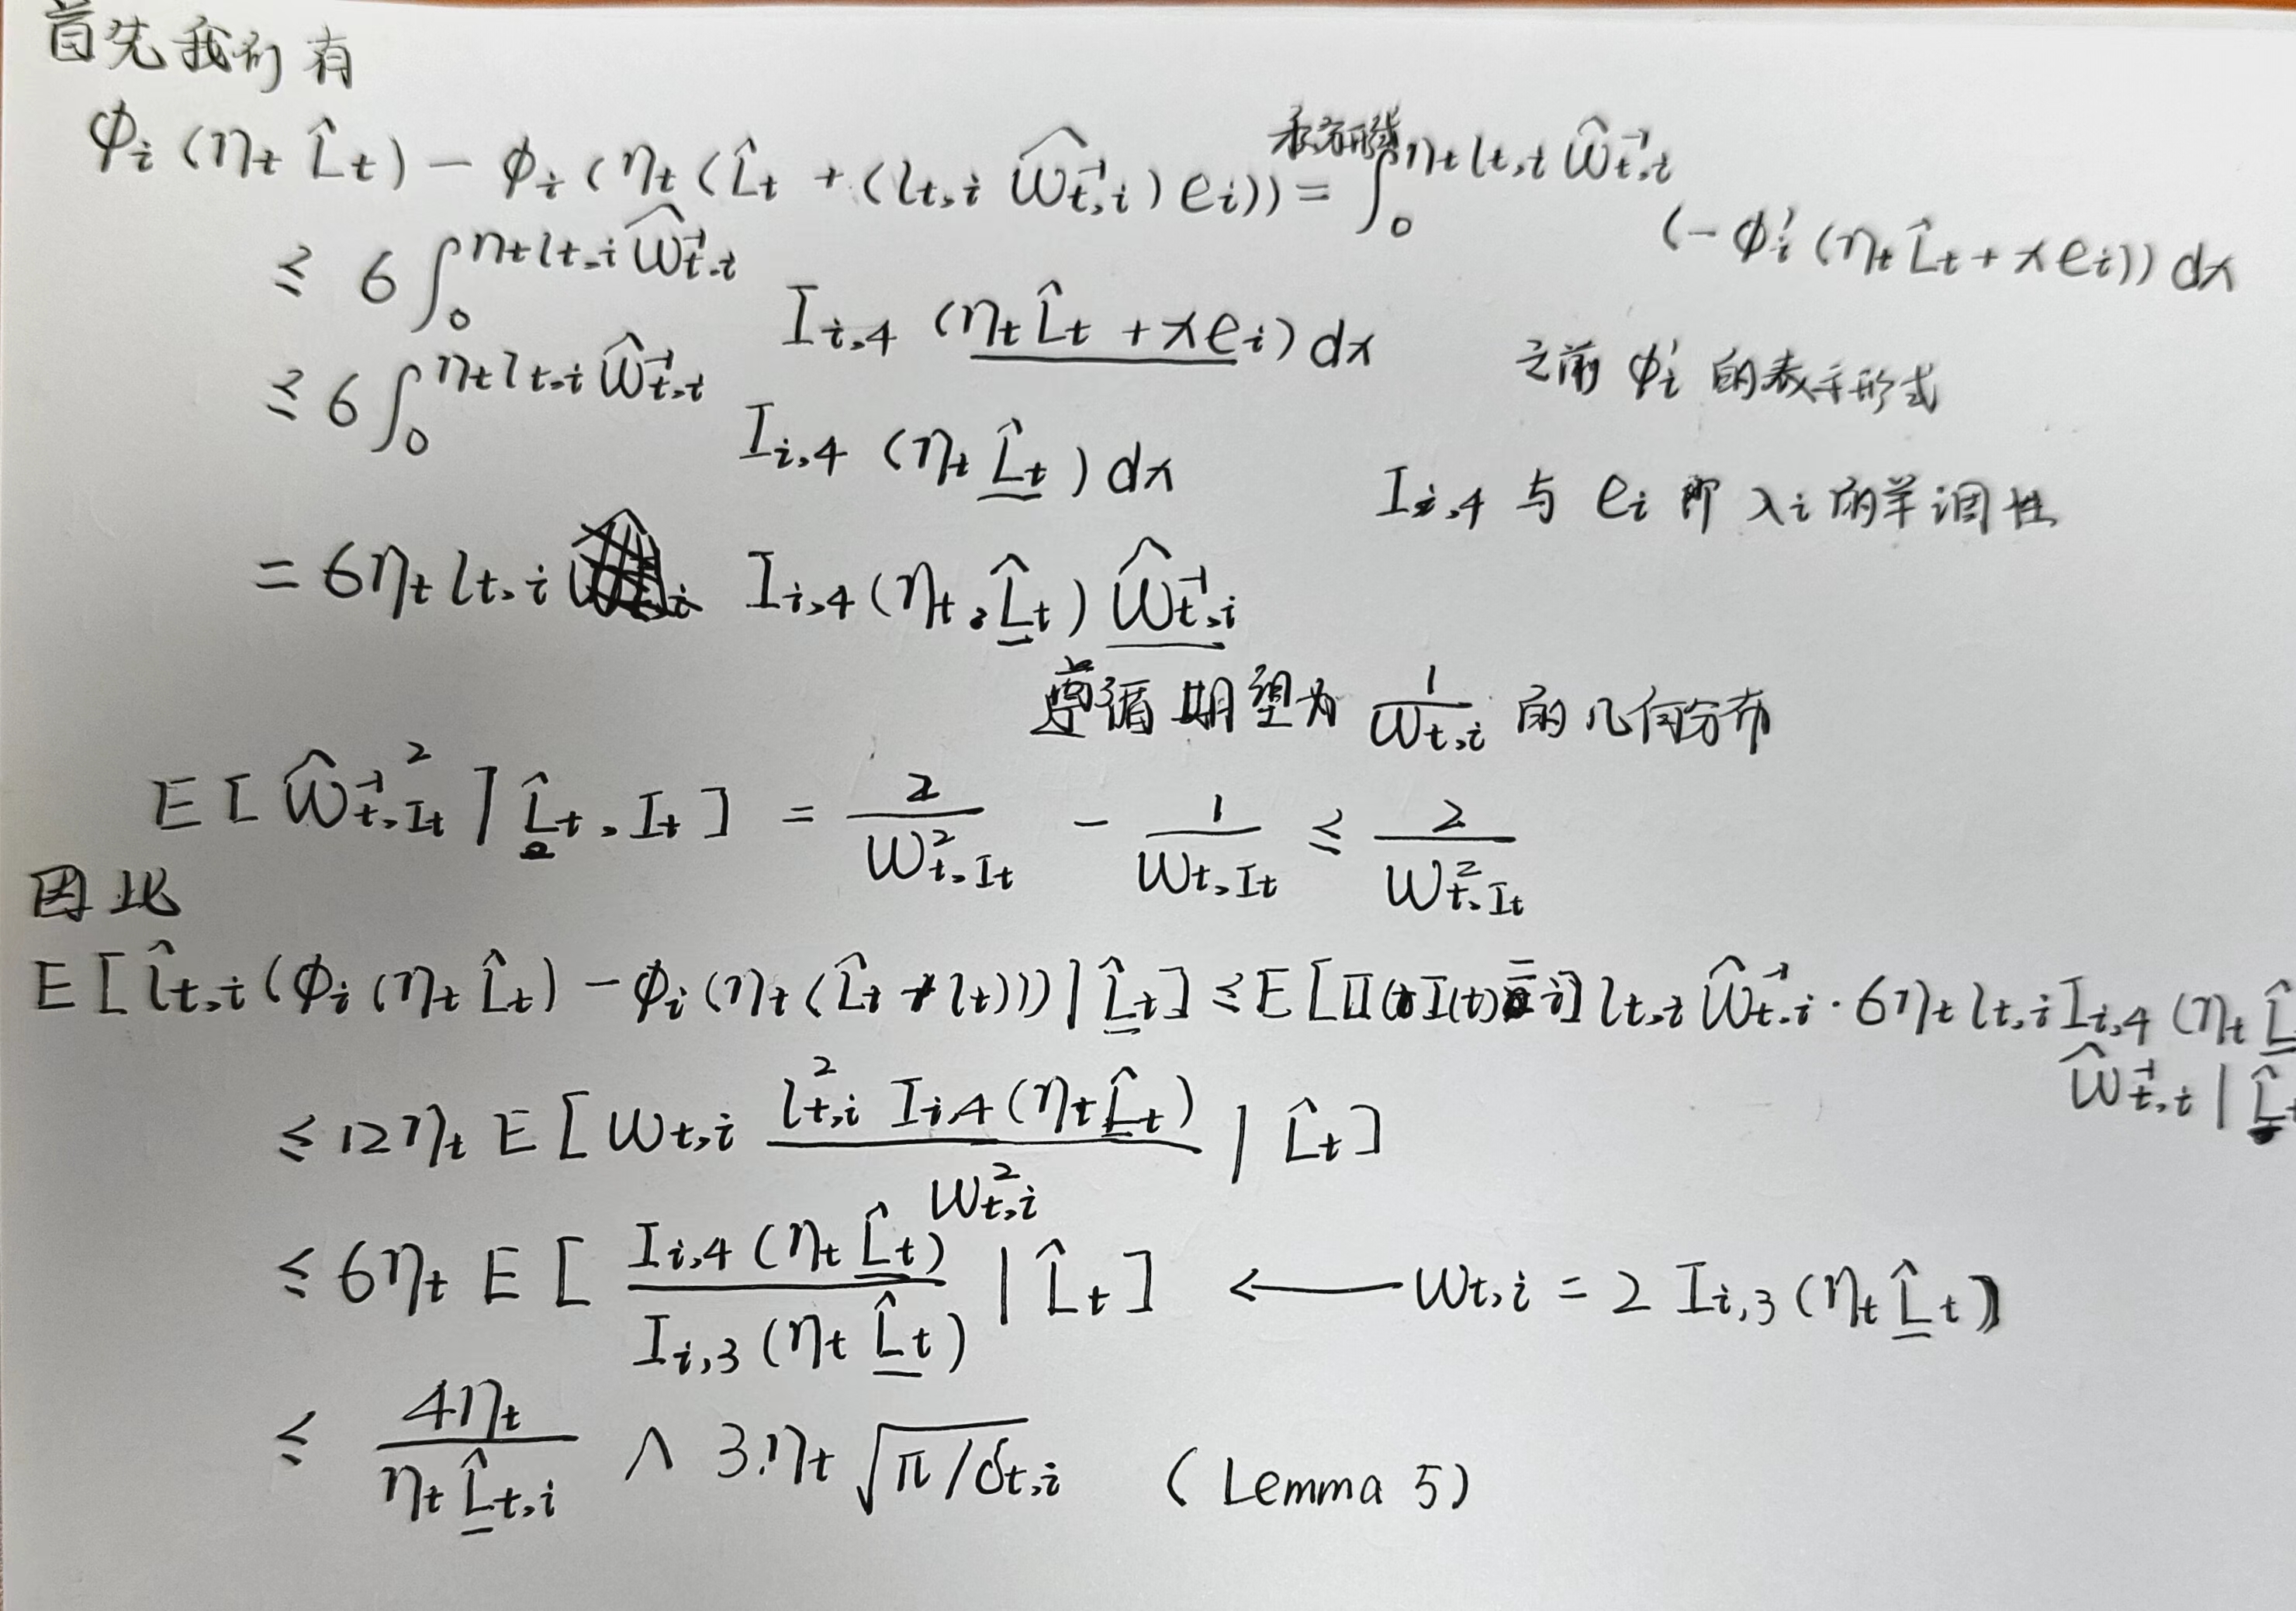 首先我们有
ϕᵢ (ηt L̂t) − ϕᵢ (ηt (L̂t + (lt,i ŵ⁻¹t,i) eᵢ)) = ∫₀^{ηt lt,i ŵ⁻¹t,i} (−ϕ'ᵢ (ηt L̂t + x eᵢ)) dx
≤ 6 ∫₀^{ηt lt,i ŵ⁻¹t,i} Iᵢ,₄ (ηt L̂t + x eᵢ) dx 之前 ϕ'ᵢ 的表示形式
≤ 6 ∫₀^{ηt lt,i ŵ⁻¹t,i} Iᵢ,₄ (ηt L̲̂t) dx Iᵢ,₄ 与 eᵢ 即 λᵢ 的单调性
= 6ηt lt,i Iᵢ,₄ (ηt, L̲̂t) ŵ⁻¹t,i
遵循期望为 1/wt,i 的几何分布
E [ŵ⁻¹t,It ² | L̲̂t, It] = 2/w²t,It − 1/wt,It ≤ 2/w²t,It
因此
E [l̂t,i (ϕᵢ (ηt L̂t) − ϕᵢ (ηt (L̂t + lt))) | L̲̂t] ≤ E [𝕀(I(t) = i] lt,i ŵ⁻¹t,i · 6ηt lt,i Iᵢ,₄ (ηt L̲̂
ŵ⁻¹t,i | L̲̂t
≤ 12ηt E [wt,i l²t,i Iᵢ,₄ (ηt L̲̂t) / w²t,i | L̂t]
≤ 6ηt E [Iᵢ,₄ (ηt L̲̂t) / Iᵢ,₃ (ηt L̲̂t) | L̂t] ← wt,i = 2 Iᵢ,₃ (ηt L̲̂t)
≤ 4ηt / ηt L̲̂t,i ∧ 3ηt √π/δt,i (Lemma 5)